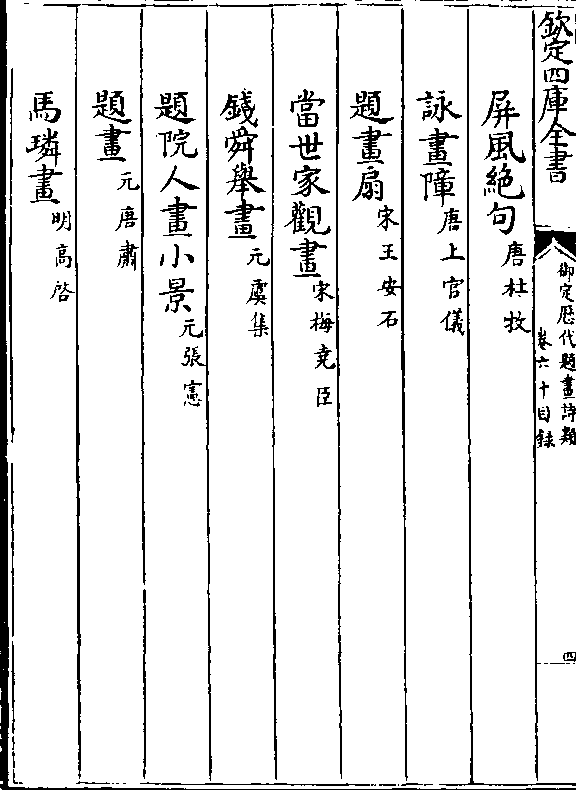 欽定四庫全書
御定歴代題畫詩類
卷六十目録
四
屏風絶句唐杜牧
詠畫障唐上官儀
題畫扇宋王安石
當世家觀畫宋梅堯臣
錢舜舉畫元虞集
題院人畫小景元張憲
題畫元唐肅
馬璘畫明高啓